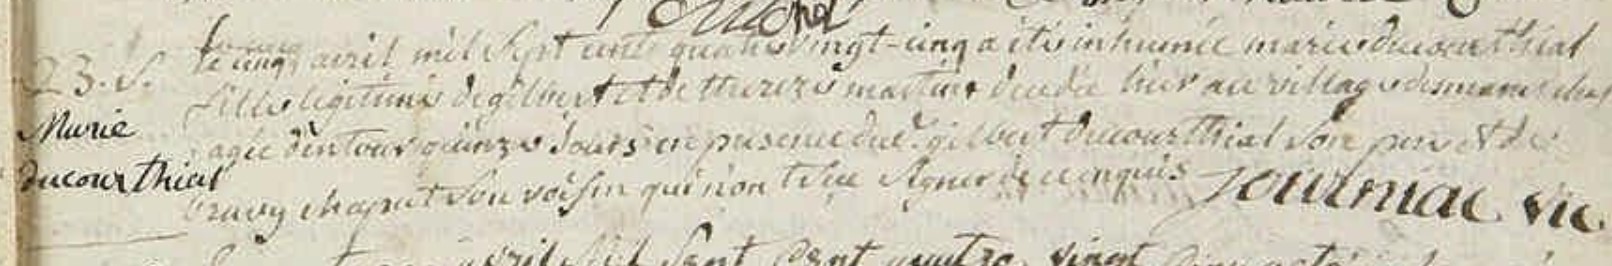 23. S.
Marie
ducourthial
le cinq avril mil sept cents quatre vingt-cinq a été inhumée marie ducourthial
fille legitime de gilbert et de thereze martin decedée hier au village
agée d'entour quinze Jours en presence dud. gilbert ducourthial son pere et de
chaput son voisin qui n'on te sçu signer de ce enquis Journiac vic.
avril mil sept cent quatre vingt